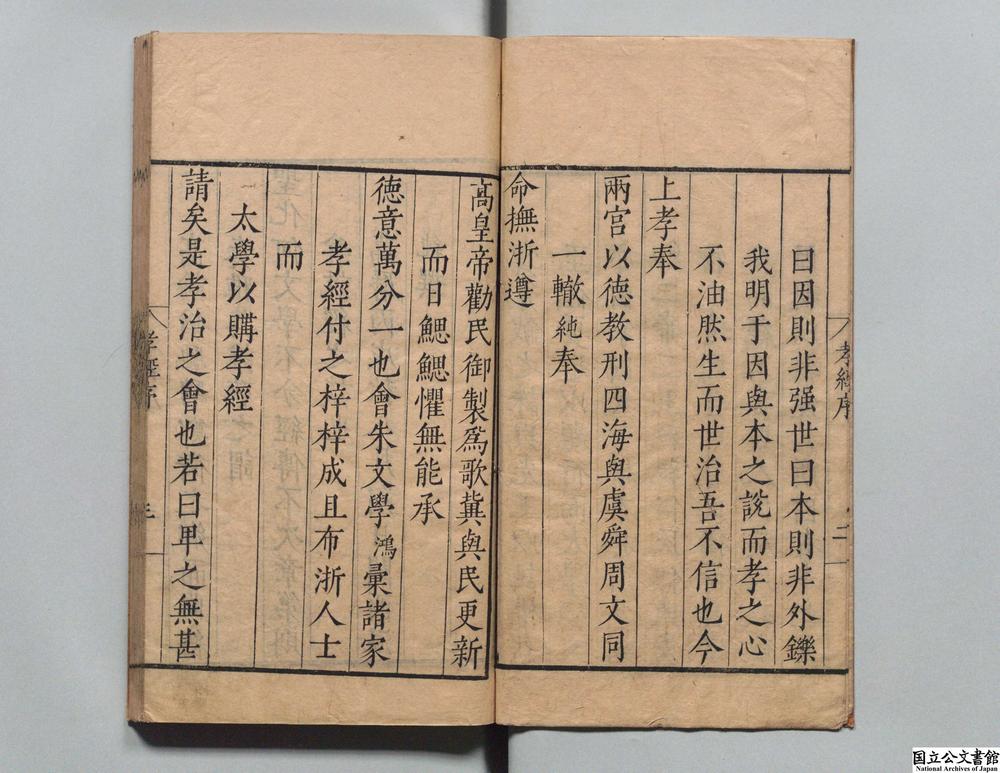 曰因則非强世曰本則非外鑠
我明于因與本之說而孝之心
不油然生而世治吾不信也今
上孝奉
兩宮以德教刑四海與虞舜周文同
一轍純奉
命撫浙遵
高皇帝勸民御製爲歌冀與民更新
而日鰓鰓懼無能承
德意萬分一也會朱文學鴻彙諸家
孝經付之梓梓成且布浙人士
而
太學以購孝經
請矣是孝治之會也若曰卑之無甚
孝經序
二
孝經序
三
国立公文書館
National Archives of Japan